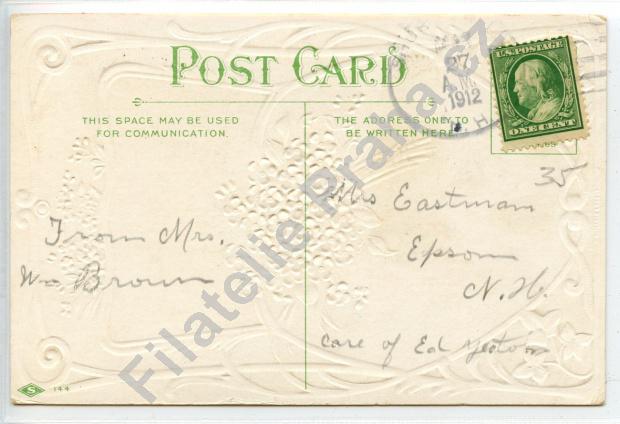 POST CARD
THIS SPACE MAY BE USED
FOR COMMUNICATION.
THE ADDRESS ONLY TO
BE WRITTEN HERE
27
A.M.
1912
N.H.
U.S. POSTAGE
ONE CENT
35
Mrs Eastman
Epsom
N.H.
care of Ed
From Mrs.
Wm Brown
S 144
Filatelie Praha.cz